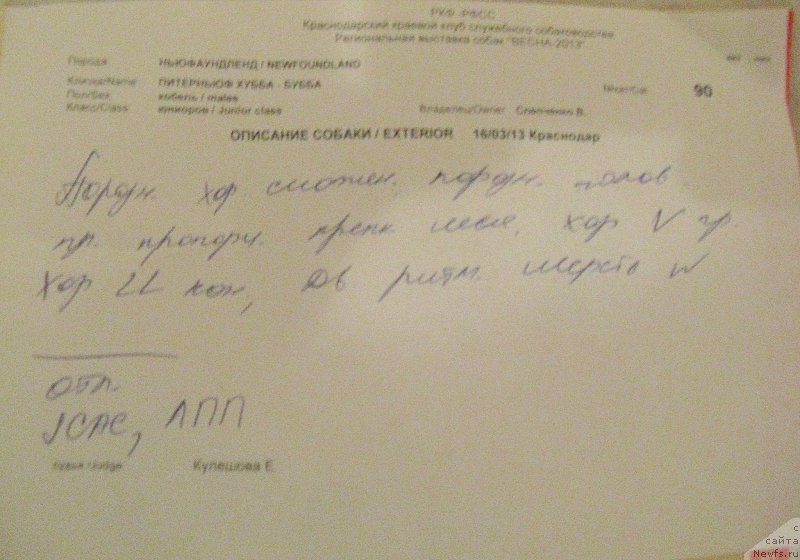 РКФ -РФСС
Краснодарский краевой клуб служебного собаководства
Региональная выставка собак "ВЕСНА-2013"
Порода НЬЮФАУНДЛЕНД / NEWFOUNDLAND
Кличка/Name ПИТЕРНЬЮФ ХУББА - БУББА
Пол/Sex кобель / males
Класс/Class юниоров / Junior class Владелец/Owner В.
90
ОПИСАНИЕ СОБАКИ / EXTERIOR 16/03/13 Краснодар
Породн. хор сложен, породн. голов
пр. пропорц. крепк. шея, хор V гр.
хор LL кон, Дв ритм. шерсть N
отл.
JCAC, ЛПП
Судья /Judge Кулешова Е.
с
сайта
Newfs.ru